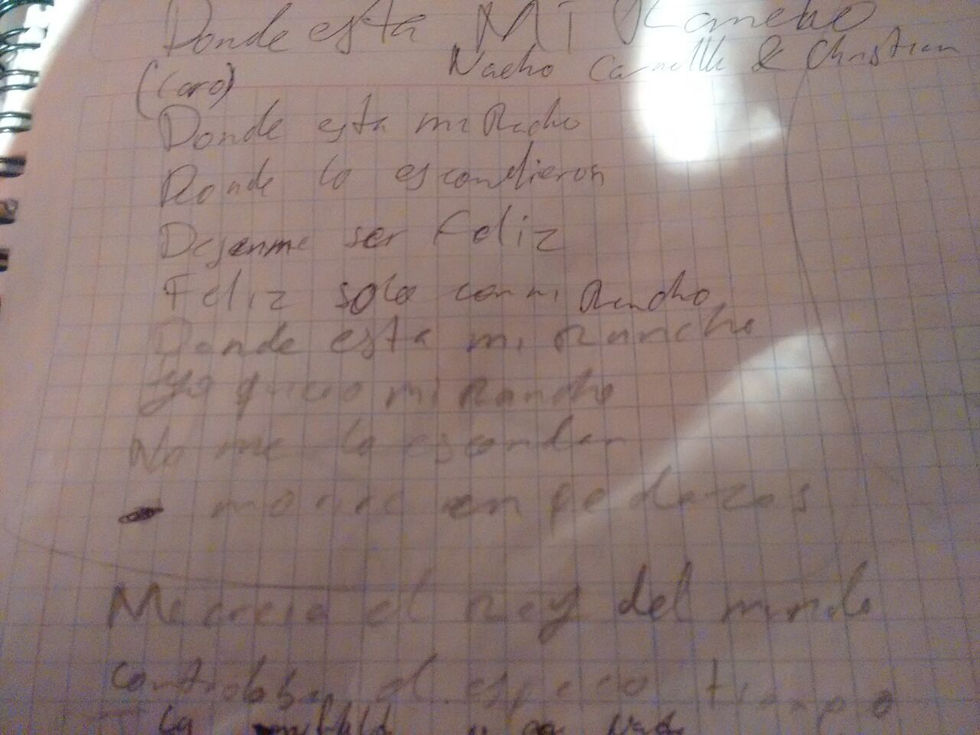 Donde esta Mi Rancho
Nacho & Christian
(Coro)
Donde esta mi Racho
Donde lo escondieron
Dejenme ser Feliz
Feliz solo con mi Rancho
Donde esta mi Rancho
Ya quiero mi Rancho
No me lo escondan
en pedazos
Me creia el Rey del mundo
controlaba el espacio tiempo
la